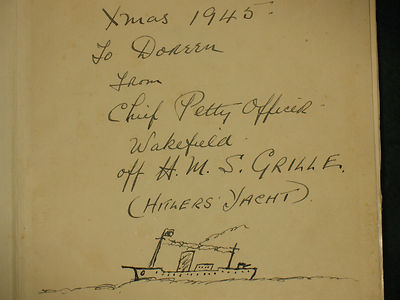 Xmas 1945
To Doreen
From
Chief Petty Officer
Wakefield
off H.M.S. GRILLE.
(HITLERS' YACHT).